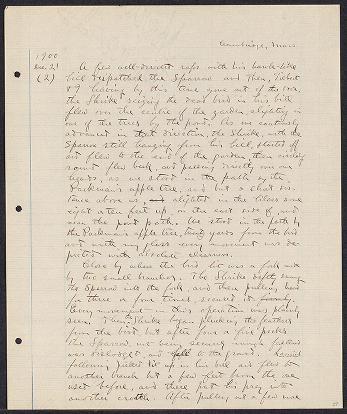 Cambridge, Mass
1900
Dec. 21
(2)
A few well-directed raps with his hawk-like
bill despatched the Sparrow and then, Gilbert
& I having by this time gone out of the door,
the Shrike seizing the dead bird in his bill
flew over the centre of the garden, alighting in
one of the trees by the pond. As we continued
advanced in that direction, the Shrike, with the
Sparrow still hanging from his bill, started off
and flew to the end of the garden, then circling
round flew back and passing directly over our
heads, as we stood in the path by the
Parkman's apple tree, and but a short dis-
tance above us, alighted in the lilacs some
eight or ten feet up, on the east side of and
near the pond path. We stood in the path by
the Parkman's apple tree, yards from the bird
and with my glass every movement was de-
picted with absolute clearness.
Close by where the bird lit was a fork made
by two small branches. The Shrike deftly swung
the Sparrow into the fork, and then pulling hard
for three or four times, secured it firmly.
Every movement in this operation was plainly
seen. The Shrike began plucking the feathers
from the bird but after four or five pecks
the Sparrow, not being securely enough fastened
was dislodged, and fell to the ground. Lanius
following picked it up in his bill and flew to
another branch but a few feet from the one
used before, and there put his prey into
another crotch. After pulling out a few more